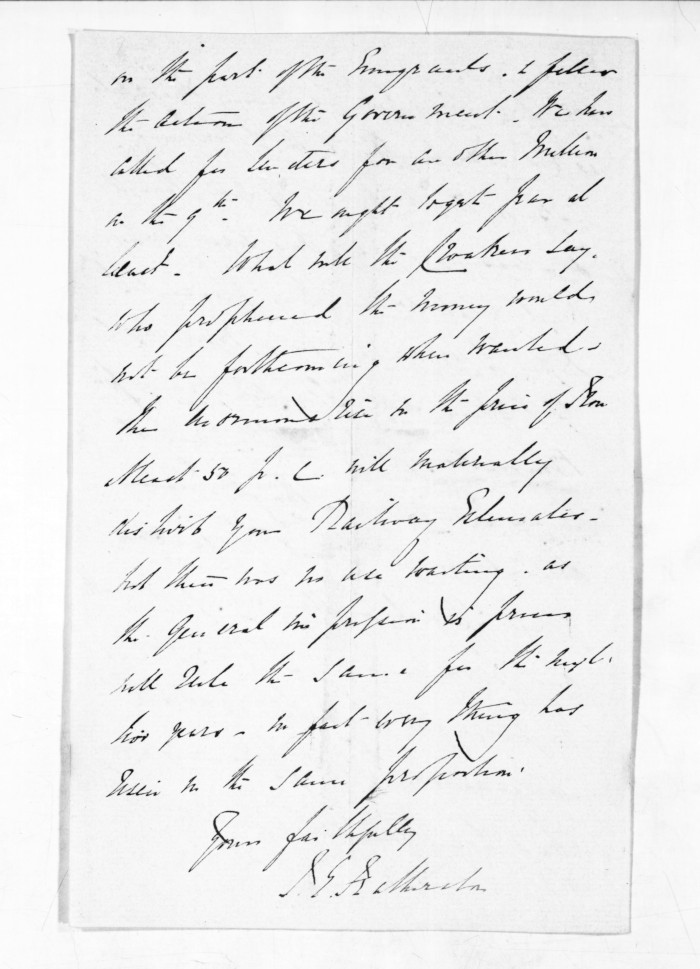 on the part of the Emigrants. & follow
the action of the Government. We have
called for tenders for another Million
on the 9th. We ought to get par at
least - What will the Croakers say.
who prophesied the money would
not be forthcoming when wanted -
the enormous rise in the price of Iron
at least 50 p. c. will materially
disturb your Railway Estimates -
but there was no use waiting. as
the general impression is prices
will rule the same for the next
two years - in fact every thing has
risen in the same proportion.
Yours faithfully
I. E. Featherston